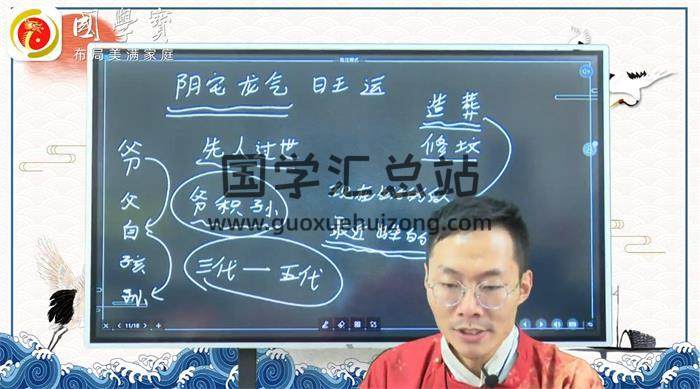 國學寶
布局美满家庭
批注模式
阴宅龙气 日王运
造葬
修坟
先人过世
爷
父
自
孩
孙
爷积孙
三代一五代
国学汇总站
www.guoxuehuizong.com
最近
11/18